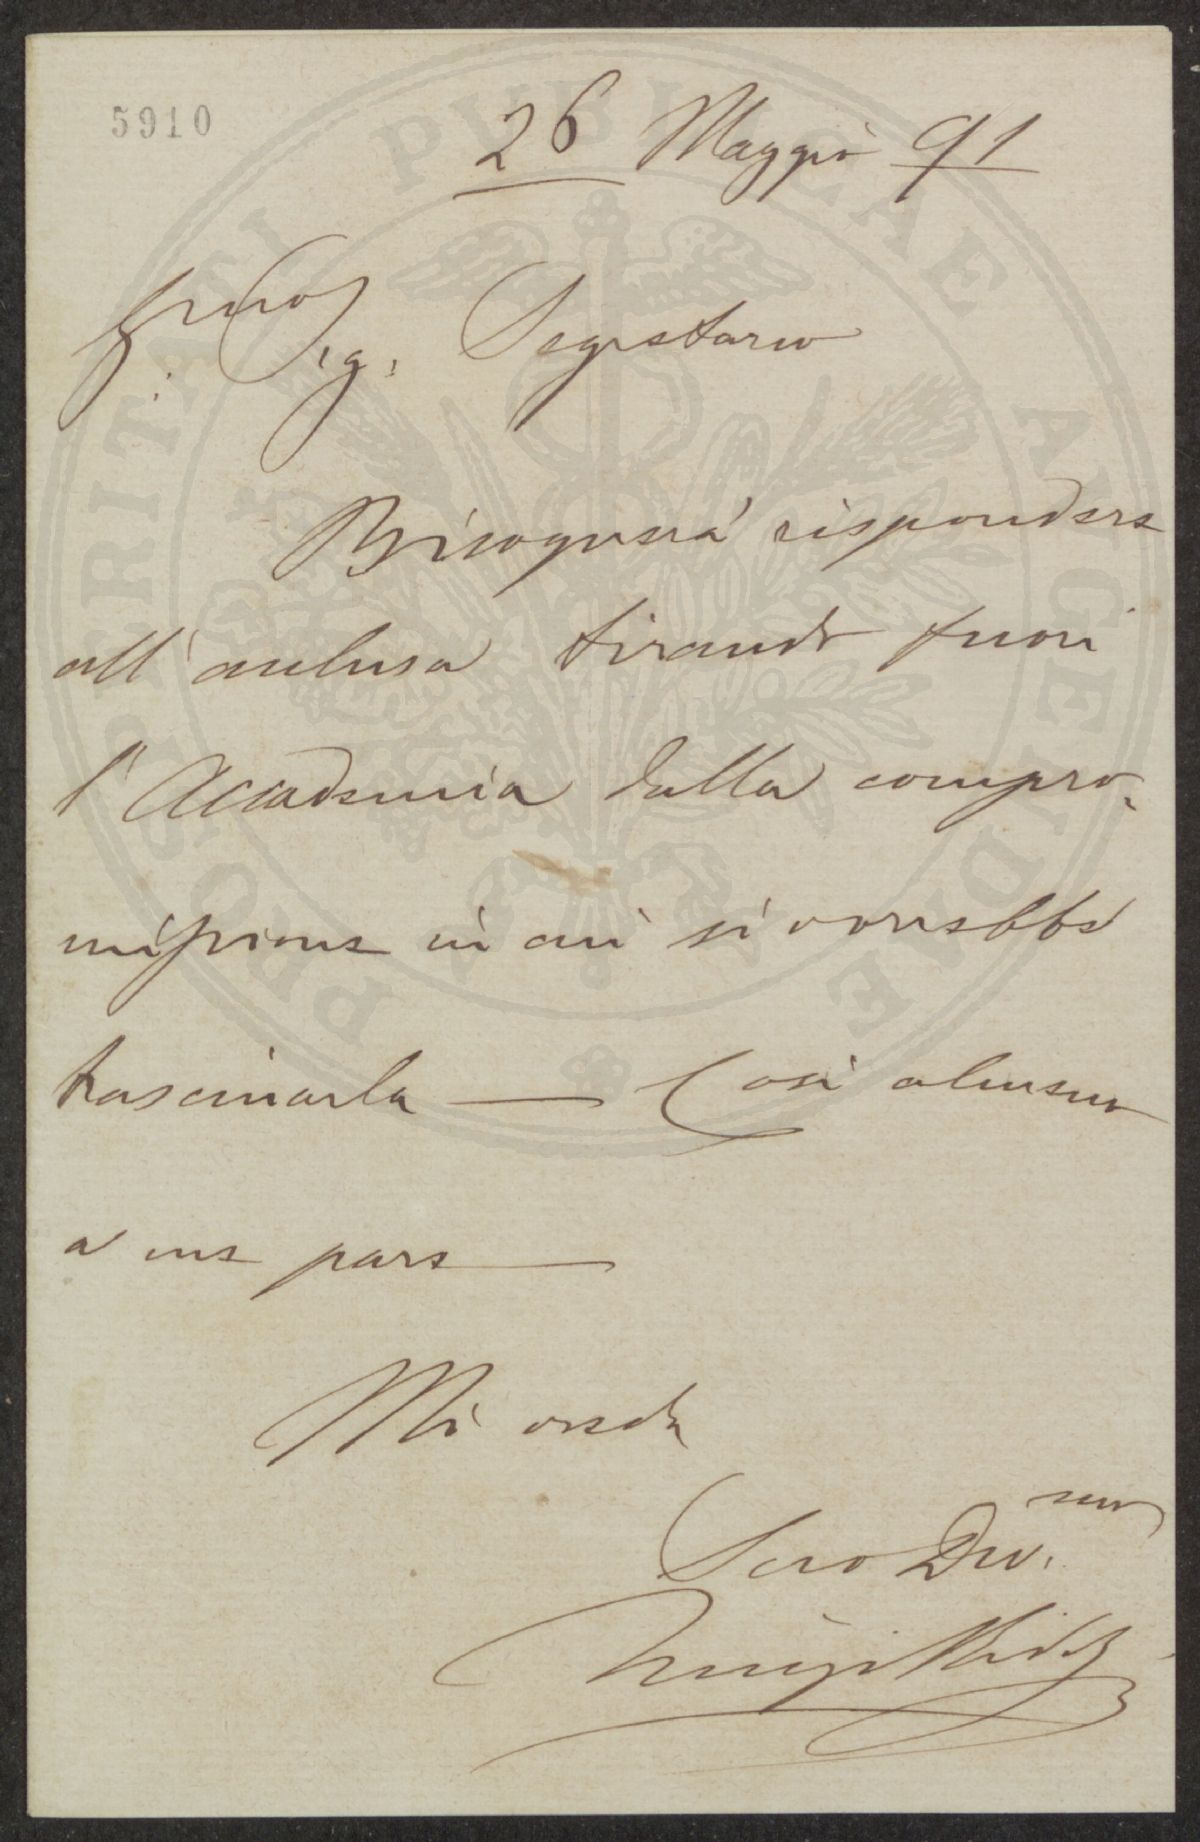 5910
26 Maggio 91
Sig. Segretario
Bisognerà rispondere
all'acclusa tirando fuori
l'Accademia dalla compro-
missione in cui si vorrebbe
trascinarla — Così almeno
a me pare —
Mi creda
Suo Dev.mo
Luigi
PROSPERITATI PUBLICAE AUGENDAE